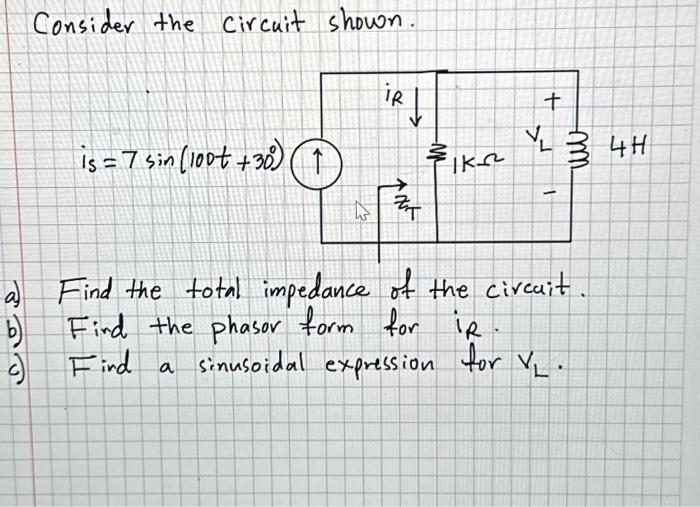 Consider the circuit shown.
iR
+
is = 7 sin(100t + 30°)
VL
4H
1KΩ
ZT
-
a) Find the total impedance of the circuit.
b) Find the phasor form for iR.
c) Find a sinusoidal expression for VL.